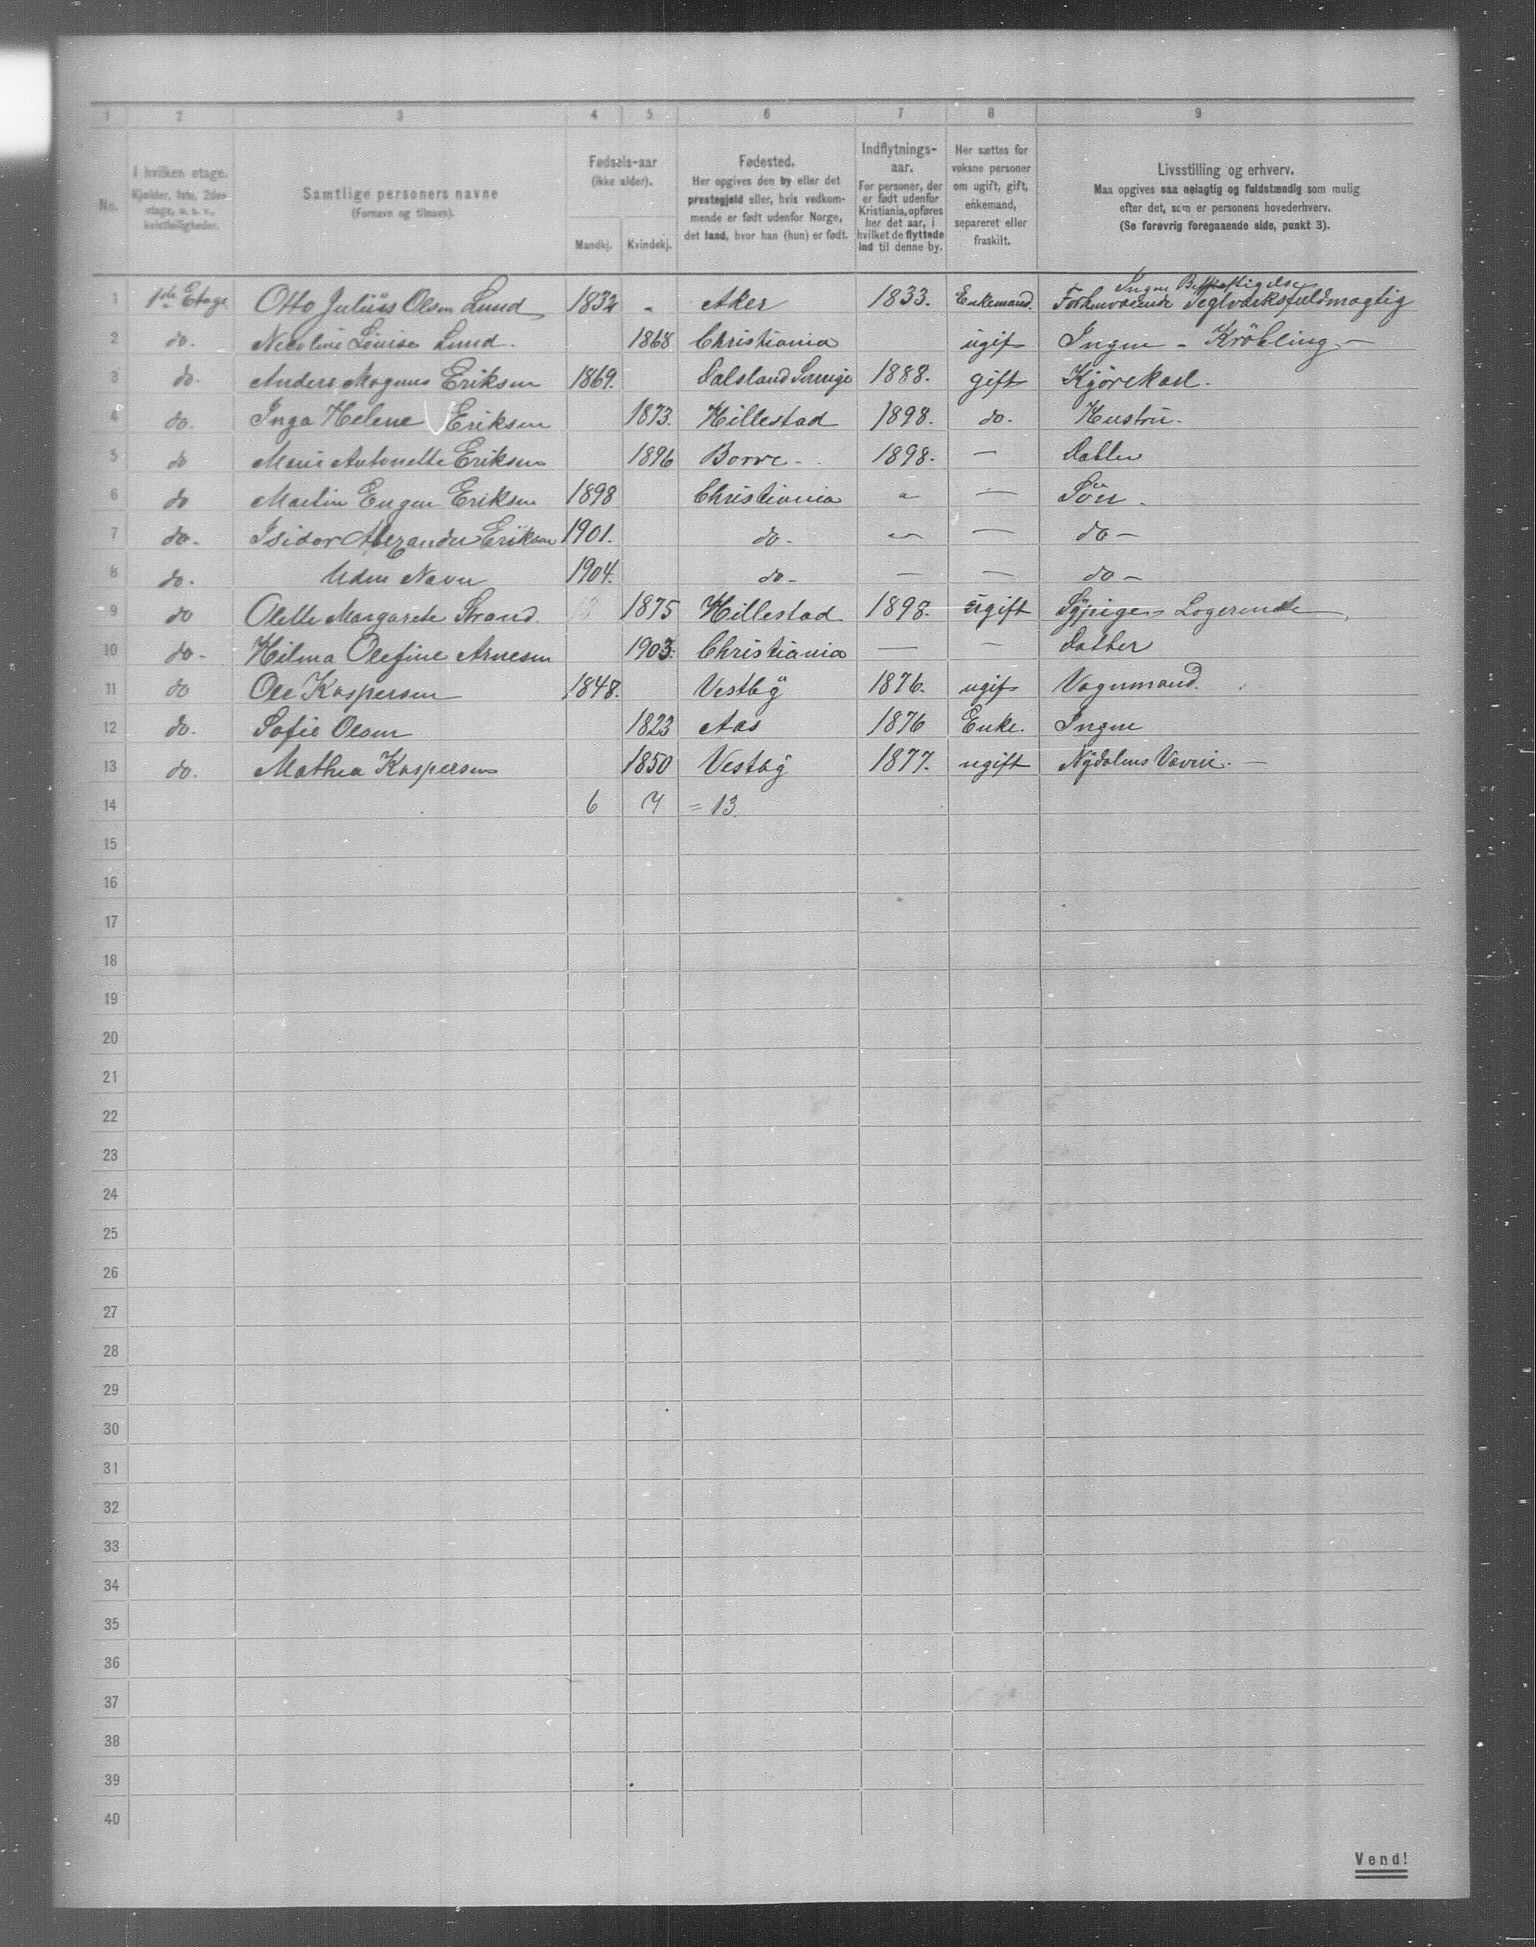 1 2 3 4 5 6 7 8 9
No.
I hvilken etage.
Kjælder, 1ste, 2den
etage, o. s. v.,
kvistleiligheder.
Samtlige personers navne
(Fornavn og tilnavn).
Fødsels-aar
(ikke alder).
Mandkj. Kvindekj.
Fødested.
Her opgives den by eller det
prestegjeld eller, hvis vedkom-
mende er født udenfor Norge,
det land, hvor han (hun) er født.
Indflytnings-
aar.
For personer, der
er født udenfor
Kristiania, opføres
her det aar, i
hvilket de flyttede
ind til denne by.
Her sættes for
voksne personer
om ugift, gift,
enkemand,
separeret eller
fraskilt.
Livsstilling og erhverv.
Maa opgives saa nøiagtig og fuldstændig som mulig
efter det, som er personens hovederhverv.
(Se forøvrig foregaaende side, punkt 3).
Ingen Beskjæftigelse
1 1ste Etage Otto Julius Olsen Lund 1832 - Aker 1833. Enkemand. Forhenværende Teglværksfuldmægtig
2 do. Nicoline Louise Lund. 1868 Christiania ugift Ingen -
3 do. Anders Magnus Eriksen 1869. Dalsland Sverige 1888. gift Kjørekarl.
4 do. Inga Helene Eriksen 1873. Hillestad 1898. do. Hustru.
5 do Marie Antonette Eriksen 1896 Borre - 1898. — Datter
6 do Martin Eugen Eriksen 1898 Christiania - — Søn.
7 do. Isidor Alexander Eriksen 1901. do. — — do —
8 do. Uden Navn 1904. do. — — do —
9 do Olette Margarete Strand. 1875 Hillestad 1898. ugift Syrige Logerende
10 do. Hilma Olefine Arnesen 1903. Christiania — — Datter
11 do Ole Kaspersen 1848. Vestby 1876. ugift Vognmand.
12 do. Sofie Olsen 1823 Aas 1876 Enke. Ingen
13 do. Mathea Kaspersen 1850 Vestby 1877. ugift Nydalens Væveri. —
14 6 7 = 13.
15
16
17
18
19
20
21
22
23
24
25
26
27
28
29
30
31
32
33
34
35
36
37
38
39
40
Vend!